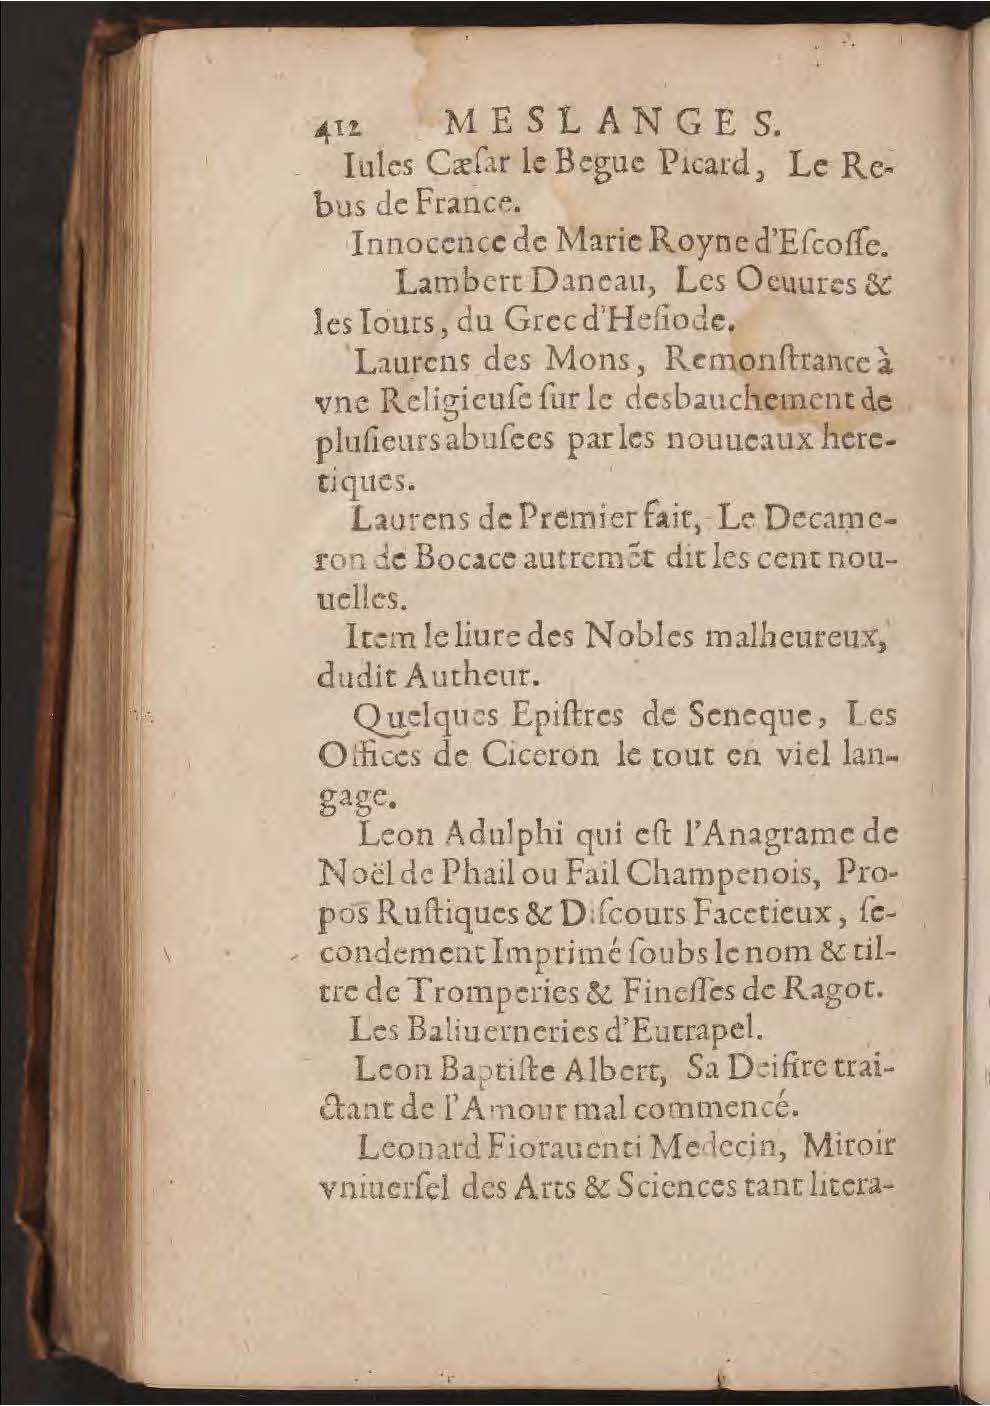 412 MESLANGES.
Iules Cæſar le Begue Picard, Le Re-
bus de France.
Innocence de Marie Royne d'Eſcoſſe.
Lambert Daneau, Les Oeuures &
les Iours, du Grec d'Heſiode.
Laurens des Mons, Remonſtrance à
vne Religieuſe ſur le desbauchement de
pluſieurs abuſees par les nouueaux here-
tiques.
Laurens de Premier fait, Le Decame-
ron de Bocace autremẽt dit les cent nou-
uelles.
Item le liure des Nobles malheureux,
dudit Autheur.
Quelques Epiſtres de Seneque, Les
Offices de Ciceron le tout en viel lan-
gage.
Leon Adulphi qui eſt l'Anagrame de
Noël de Phail ou Fail Champenois, Pro-
pos Ruſtiques & Diſcours Facetieux, ſe-
condement Imprimé ſoubs le nom & til-
tre de Tromperies & Fineſſes de Ragot.
Les Baliuerneries d'Eutrapel.
Leon Baptiſte Albert, Sa Deifire trai-
ctant de l'Amour mal commencé.
Leonard Fiorauenti Medecin, Miroir
vniuerſel des Arts & Sciences tant litera-